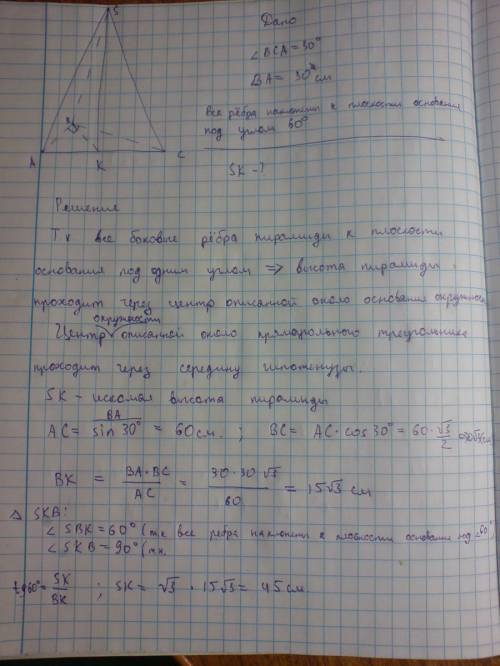 S
Дано
∠BCA = 30°
BA = 30 см
Все рёбра наклонены к плоскости основания
под углом 60°
SK - ?
A K C
Решение
Т к все боковые рёбра пирамиды к плоскости
основания под одним углом => высота пирамиды
проходит через центр описанной около основания окружности
Центр окружности описанной около прямоугольного треугольника
проходит через середину гипотенузы.
SK - искомая высота пирамиды
AC = BA / sin 30° = 60 см. ; BC = AC · cos 30° = 60 · √3/2 = 30√3 см
BK = BA · BC / AC = 30 · 30 √3 / 60 = 15√3 см
Δ SKB:
∠ SBK = 60° (т к все ребра наклонены к плоскости основания под ∠60°)
∠ SKB = 90° (т.к.
tg 60° = SK / BK ; SK = √3 · 15√3 = 45 см